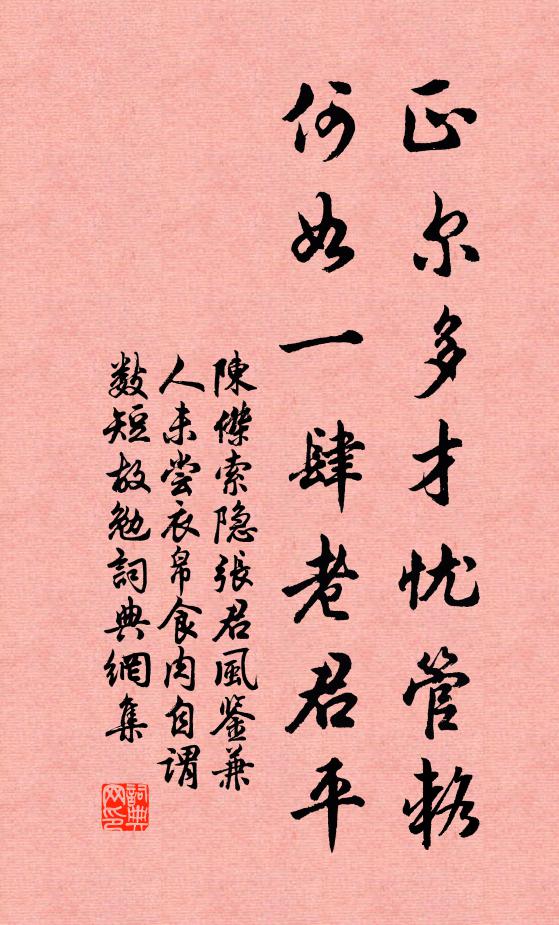 正尔多才忧管輅
何如一肆老君平
陳傑索隐張君風鑒兼
人未尝衣帛食肉自谓
数短故勉詞典網集
詞典网印